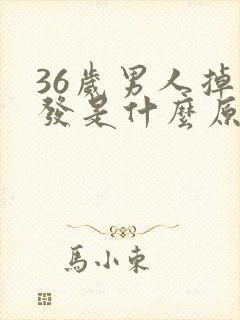 36歲男人掉
發是什麼原
馬小東